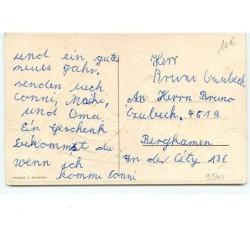 und ein gutes
neues Jahr.
senden euch
Conni, Maiki,
und Oma.
Ein Geschenk
bekommst du
wenn ich
komme Conni
10€
Herr
Bruno Czubeck
An Herrn Bruno
Czubeck, 4619
Bergkamen
An der City 13E